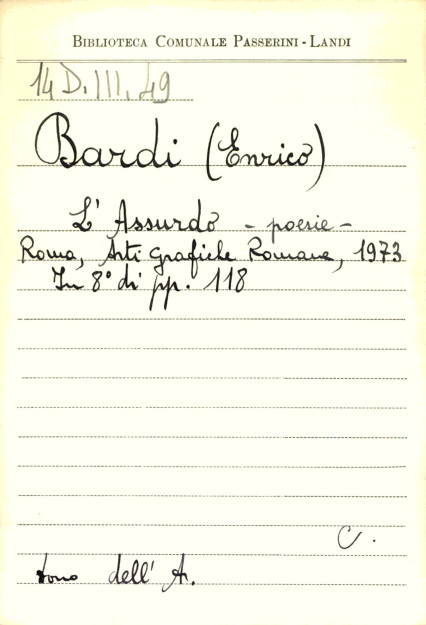 BIBLIOTECA COMUNALE PASSERINI - LANDI
14 D. III. 49
Bardi (Enrico)
L' Assurdo - poesie -
Roma, Arti Grafiche Romane, 1973
In 8° di pp. 118
C.
dono dell' A.